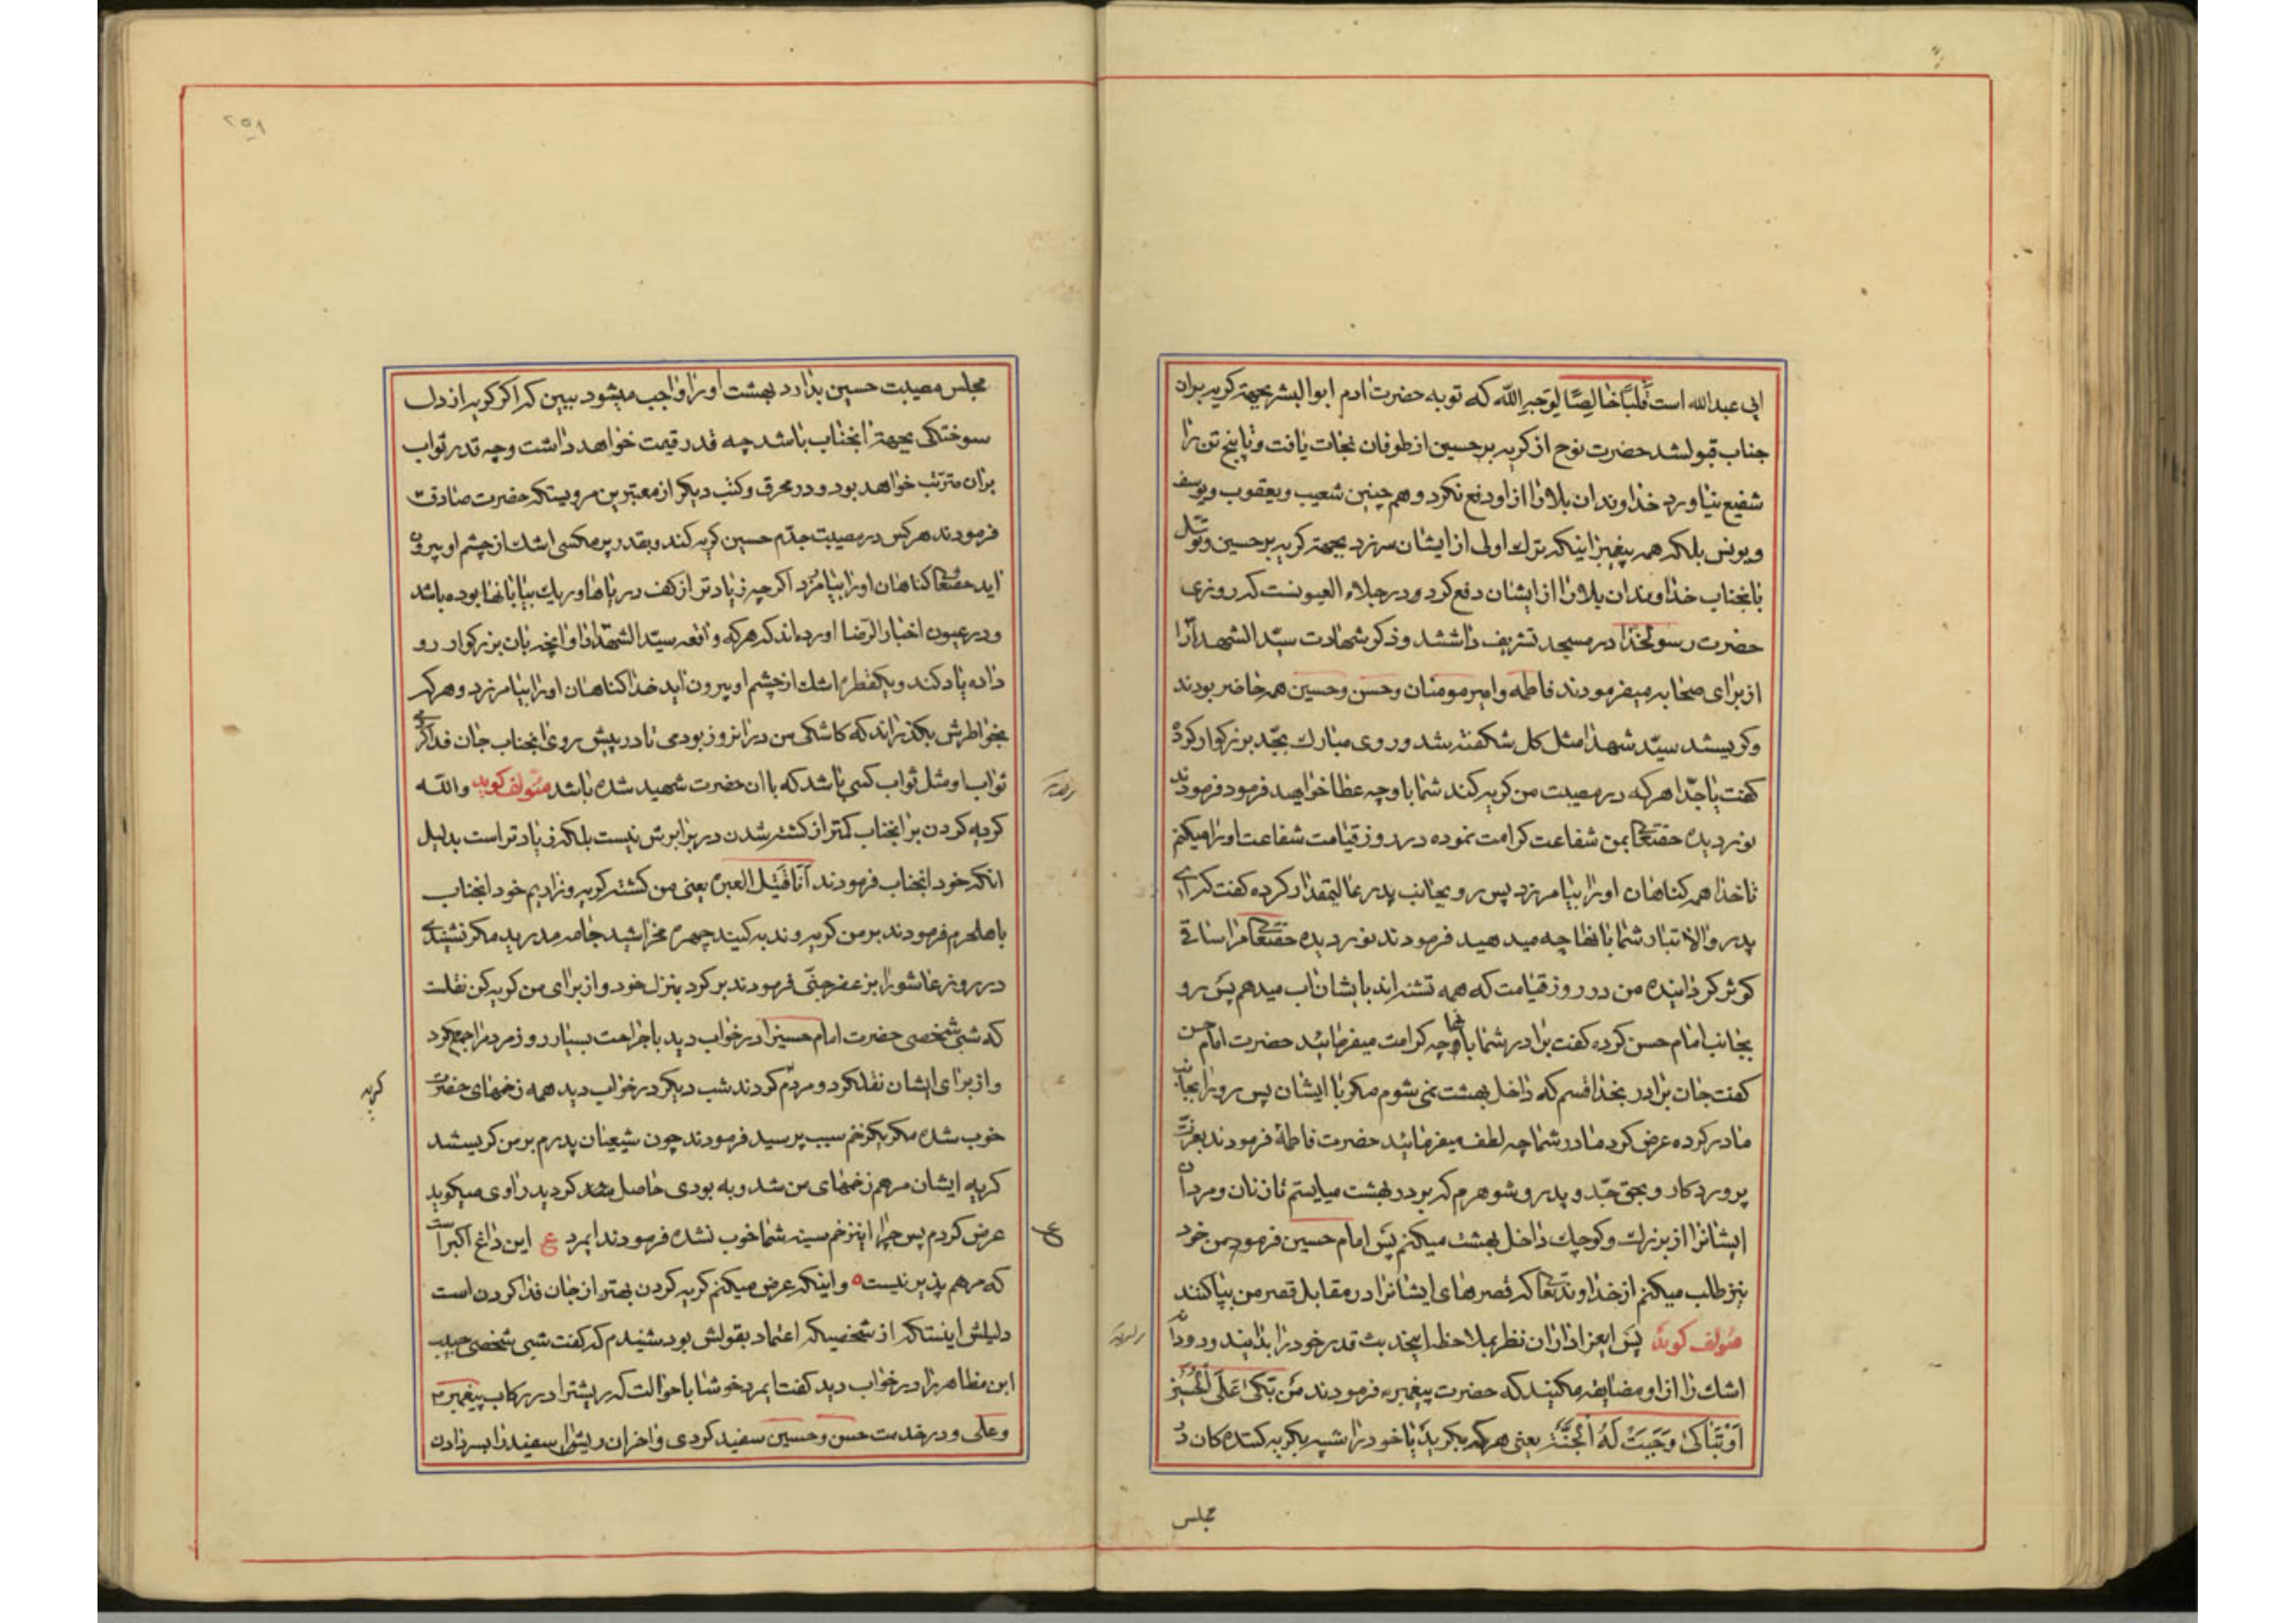 ابی عبدالله است قلبًا خالِصًا لِوَجهِ الله که توبه حضرت ادم ابوالبشر بجهة کریه بران
جناب قبولشد حضرت نوح از کریه بر حسین از طوفان نجات یافت و تا پنج تن را
شفیع نیاورد خداوند ان بلا را از او دفع نکرد و هم چنین شعیب و یعقوب و یوسف
و یونس بلکه همه پیغمبران اینکه ترک اولی از ایشان سرزد بجهة کریه بر حسین و توسّل
بانجناب خداوند ان بلا را از ایشان دفع کرد و در جلاء العیونست که روزی
حضرت رسولخدا در مسجد تشریف داشتند و ذکر شهادت سیّد الشهدا را
از برای صحابه میفرمودند فاطمه و امیرمومنان و حسن و حسین همه حاضر بودند
و کریستند سیّد شهدا مثل کل شکفته شد و روی مبارک بجدّ بزرکوار کرده
کفت یا جدّا هر که در مصیبت من کریه کند شما با او چه عطا خواهید فرمود فرمودند
نور دیده حقتعالی بمن شفاعت کرامت نموده در روز قیامت شفاعت او را میکنم
تا خدا همه کناهان او را بیامرزد پس رو بجانب پدر عالیمقدار کرده کفت که ای
پدر والا تبار شما بانها چه میدهید فرمودند نور دیده حقتعالی مرا ساقی
کوثر کردانیده من در روز قیامت که همه تشنه اند بایشان اب میدهم پس رو
بجانب امام حسن کرده کفت برادر شما بانها چه کرامت میفرمائید حضرت امام حسن
کفت جان برادر بخدا قسم که داخل بهشت نمی شوم مکر با ایشان پس رو را بجانب
مادر کرده عرض کرد مادر شما چه لطف میفرمائید حضرت فاطمه فرمودند بعزّت
پروردکار و بحق جدّ و پدر و شوهرم که بر در بهشت میایستم تا زنان و مردان
ایشانرا از بزرک و کوچک داخل بهشت میکنم پس امام حسین فرمود من خود
نیز طلب میکنم از خداوند تعالی که قصرهای ایشانرا در مقابل قصر من بپا کنند
مؤلف کوید پس ایعزاداران نظر بملاحظه اینحدیث قدر خود را بدانید و دو دانه
اشک را از او مضایقه مکنید که حضرت پیغمبر فرمودند مَن بَکیٰ عَلَی الحُسَین
اَو تَباکیٰ وَجَبَتْ لَهُ الجَنَّة یعنی هر که بکرید یا خود را شبیه بکریه کننده کان در
مجلس
۲۵۸
مجلس مصیبت حسین بدارد بهشت او را واجب میشود ببین که اکر کریه از دل
سوختکی بجهة انجناب باشد چه قدر قیمت خواهد داشت و چه قدر ثواب
بران مترتب خواهد بود و در محرق و کتب دیکر از معتبرین مرویستکه حضرت صادق
فرمودند هر کس در مصیبت جدّم حسین کریه کند و بقدر پر مکسی اشک از چشم او بیرون
اید حقتعالی کناهان او را بیامرزد اکر چه زیادتر از کف دریاها و ریک بیابانها بوده باشد
و در عیون اخبار الرّضا اورده اند که هر که واقعه سیّد الشهدا را و انچه بان بزرکوار رو
داده یاد کند و یکقطره اشک از چشم او بیرون اید خدا کناهان او را بیامرزد و هر که
بخواطرش بکذراند که کاشکی من در انروز بودمی تا در پیش روی انجناب جان فدا کردمی
ثواب او مثل ثواب کسی باشد که با ان حضرت شهید شده باشد مؤلف کوید والله
کریه کردن بر انجناب کمتر از کشته شدن در برابرش نیست بلکه زیادتر است بدلیل
انکه خود انجناب فرمودند اَنَا قَتیل العبره یعنی من کشته کریه و زاریم خود انجناب
باهلحرم فرمودند بر من کریه و ندبه کنید چهره مخراشید جامه مدرید مکر نشنیدی
در روز عاشورا بزعفر جنّی فرمودند بر کرد بمنزل خود و از برای من کریه کن نقلست
که شبی شخصی حضرت امام حسین را در خواب دید با جراحت بسیار روز مردم را جمع کرد
و از برای ایشان نقل کرد و مردم کردند شب دیکر در خواب دید همه زخمهای حضرت
کریه
خوب شده مکر یکزخم سبب پرسید فرمودند چون شیعیان پدرم بر من کریستند
کریه ایشان مرهم زخمهای من شد و به بودی حاصل کردید راوی میکوید
عرض کردم پس چرا اینزخم سینه شما خوب نشده فرمودند ایمرد ع این داغ اکبر است
که مرهم پذیر نیست و اینکه عرض میکنم کریه کردن بهتر از جان فدا کردن است
دلیلش اینستکه از شخصیکه اعتماد بقولش بود شنیدم که کفت شبی شخصی حبیب
ابن مظاهر را در خواب دید کفت ایمرد خوشا باحوالت که ریشترا در رکاب پیغمبر
و علی و در خدمت حسن و حسین سفید کردی و اخر ان ریش سفید را بسر دادن